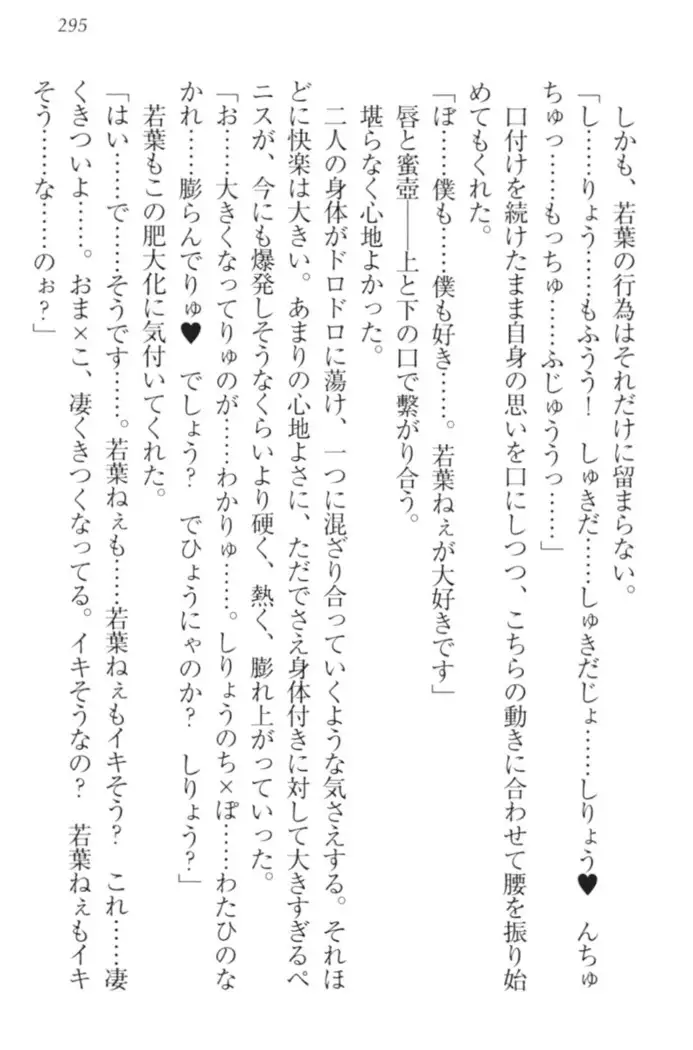 295
しかも、若葉の行為はそれだけに留まらない。
「し……りょう……もふうう！　しゅきだ……しゅきだじょ……しりょう♥　んちゅ
ちゅっ……もっちゅ……ふじゅううっ……」
口付けを続けたまま自身の思いを口にしつつ、こちらの動きに合わせて腰を振り始
めてもくれた。
「ぼ……僕も……僕も好き……。若葉ねぇが大好きです」
唇と蜜壺――上と下の口で繋がり合う。
堪らなく心地よかった。
二人の身体がドロドロに蕩け、一つに混ざり合っていくような気さえする。それほ
どに快楽は大きい。あまりの心地よさに、ただでさえ身体付きに対して大きすぎるペ
ニスが、今にも爆発しそうなくらいより硬く、熱く、膨れ上がっていった。
「お……大きくなってりゅのが……わかりゅ……。しりょうのち×ぽ……わたひのな
かれ……膨らんでりゅ♥　でしょう？　でひょうにゃのか？　しりょう？」
若葉もこの肥大化に気付いてくれた。
「はい……で……そうです……。若葉ねぇも……若葉ねぇもイキそう？　これ……凄
くきついよ……。おま×こ、凄くきつくなってる。イキそうなの？　若葉ねぇもイキ
そう……な……のぉ？」